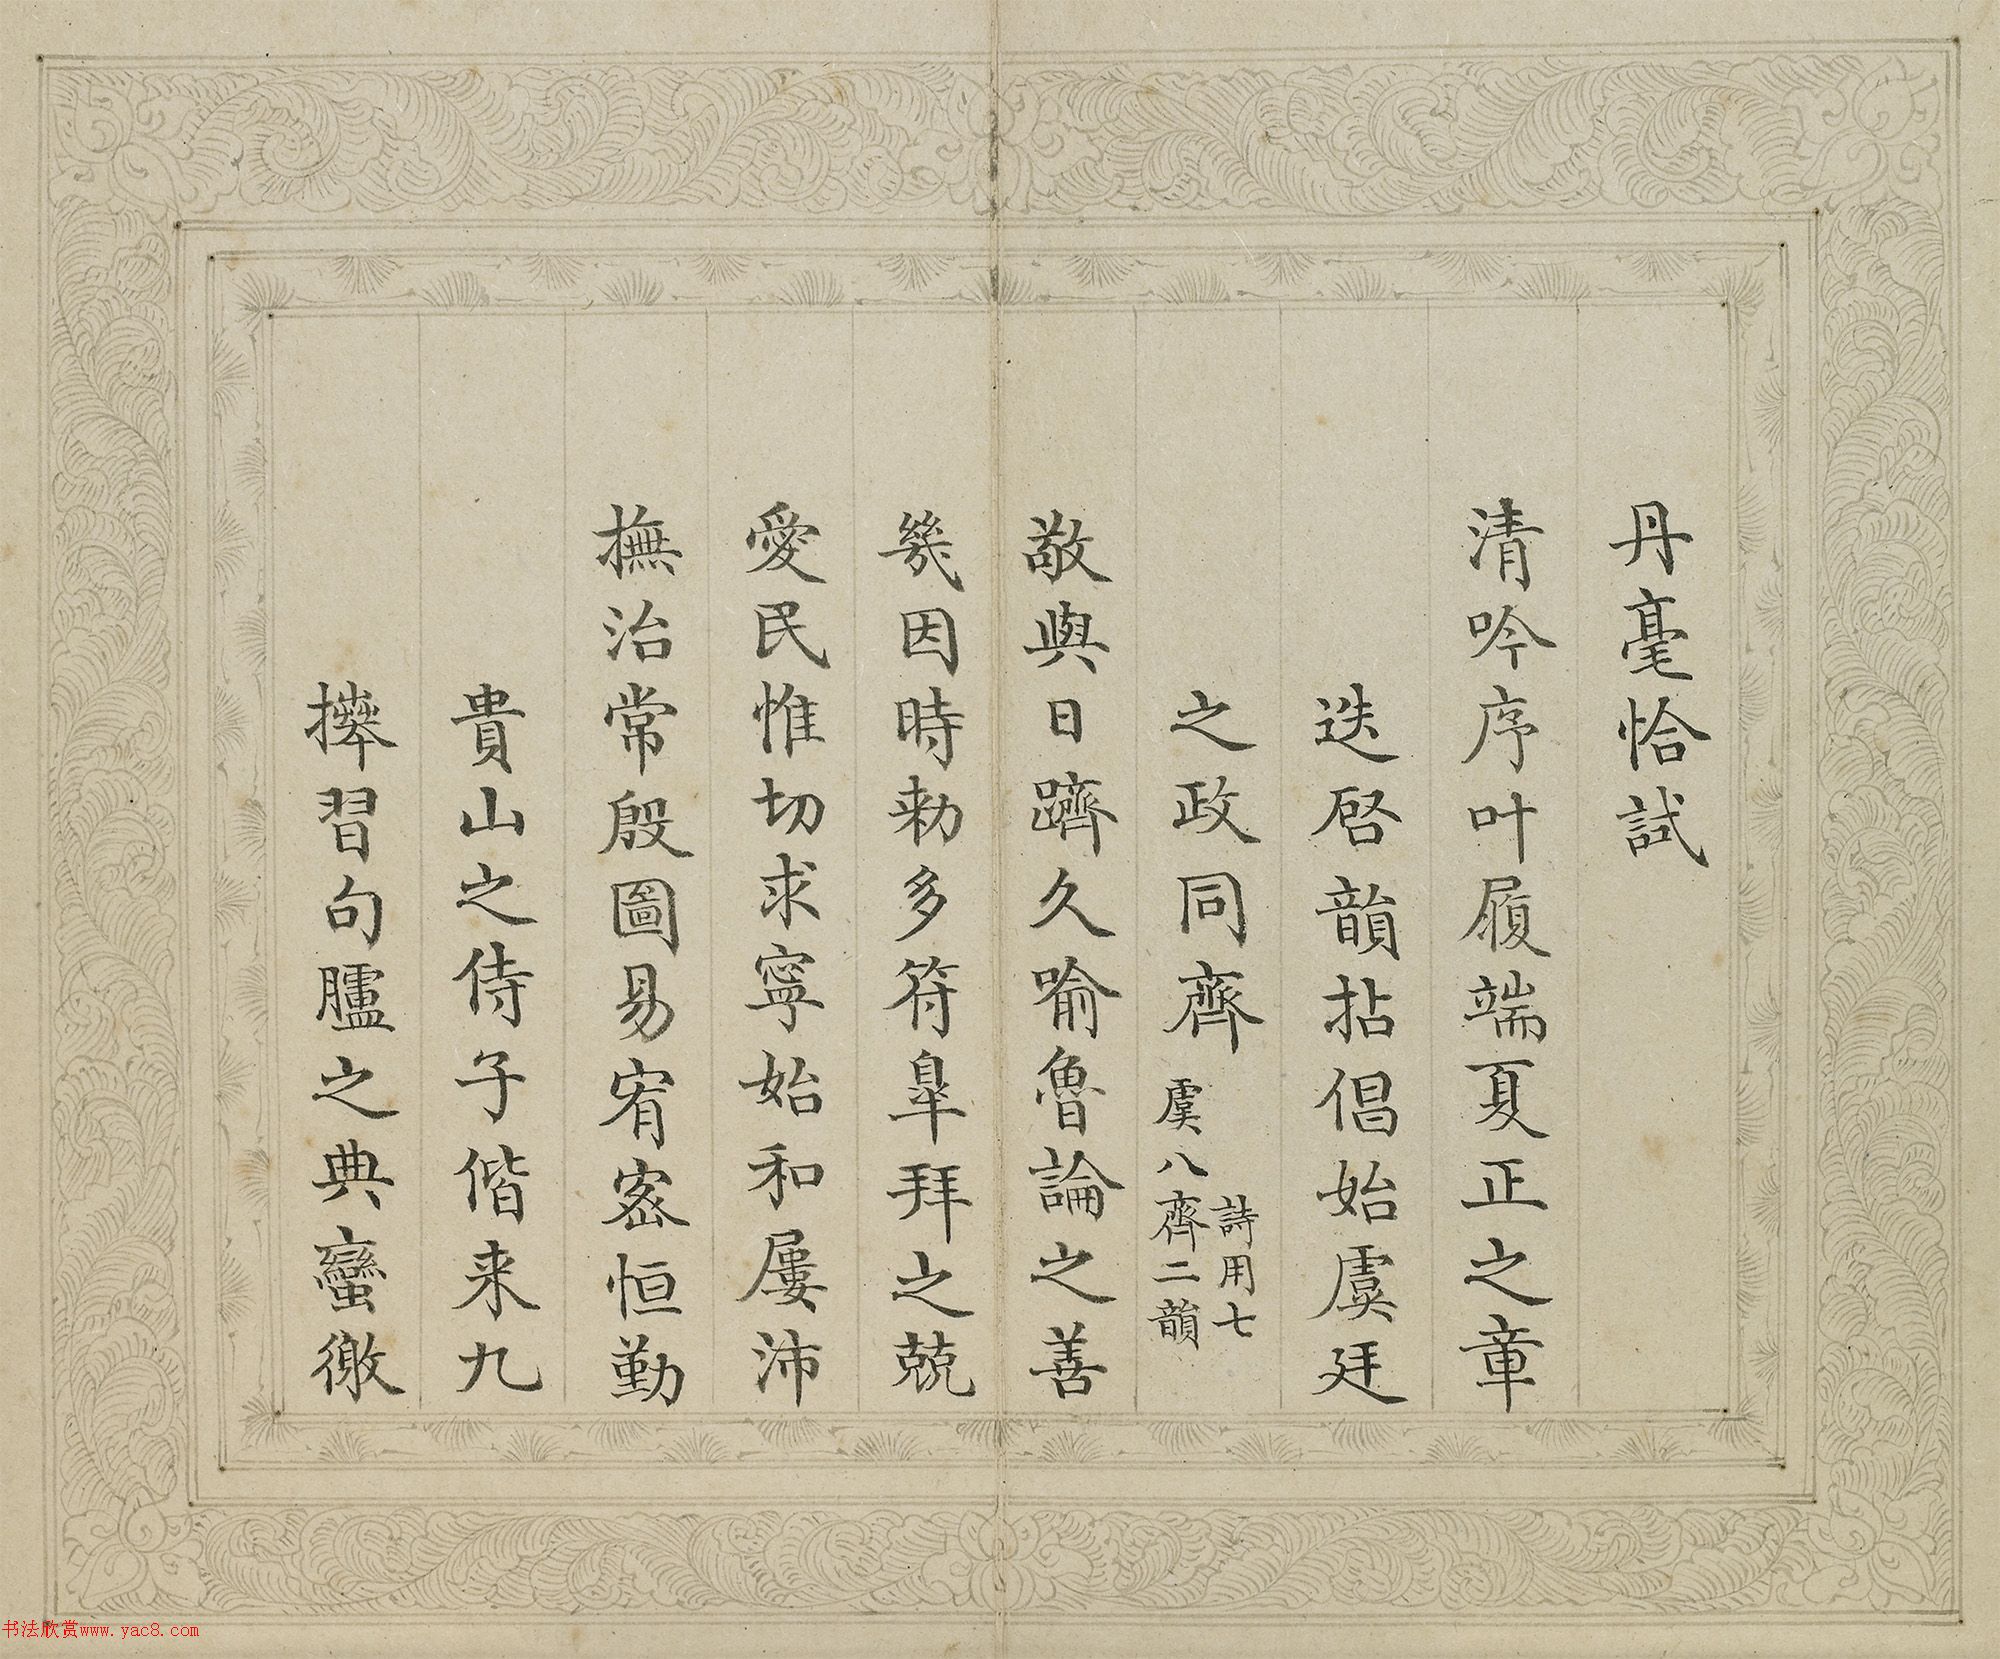 丹毫恰試
清吟序叶履端夏正之章
迭啓韻拈倡始虞廷
之政同齊詩用七
虞八齊二韻
敬與日躋久喻魯論之善
幾因時勅多符臯拜之兢
愛民惟切求寧始和屢沛
撫治常殷圖易宥密恒勤
貴山之侍子偕来九
擇習句臚之典蠻徼
书法欣赏www.yac8.com